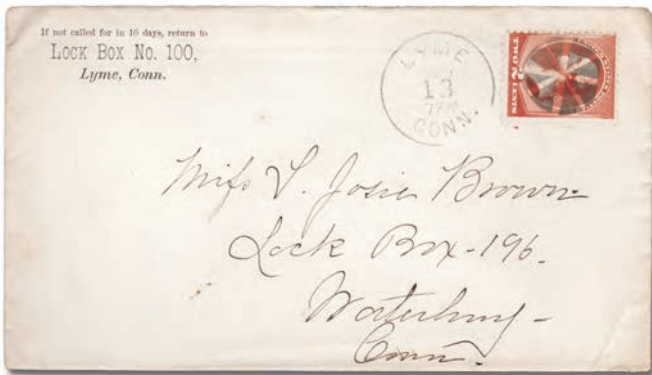 If not called for in 10 days, return to
Lock Box No. 100,
Lyme, Conn.
LYME
13
7PM
CONN.
TWO 2 CENTS
Miss L. Josie Brown
Lock Box-196.
Waterbury-
Conn.